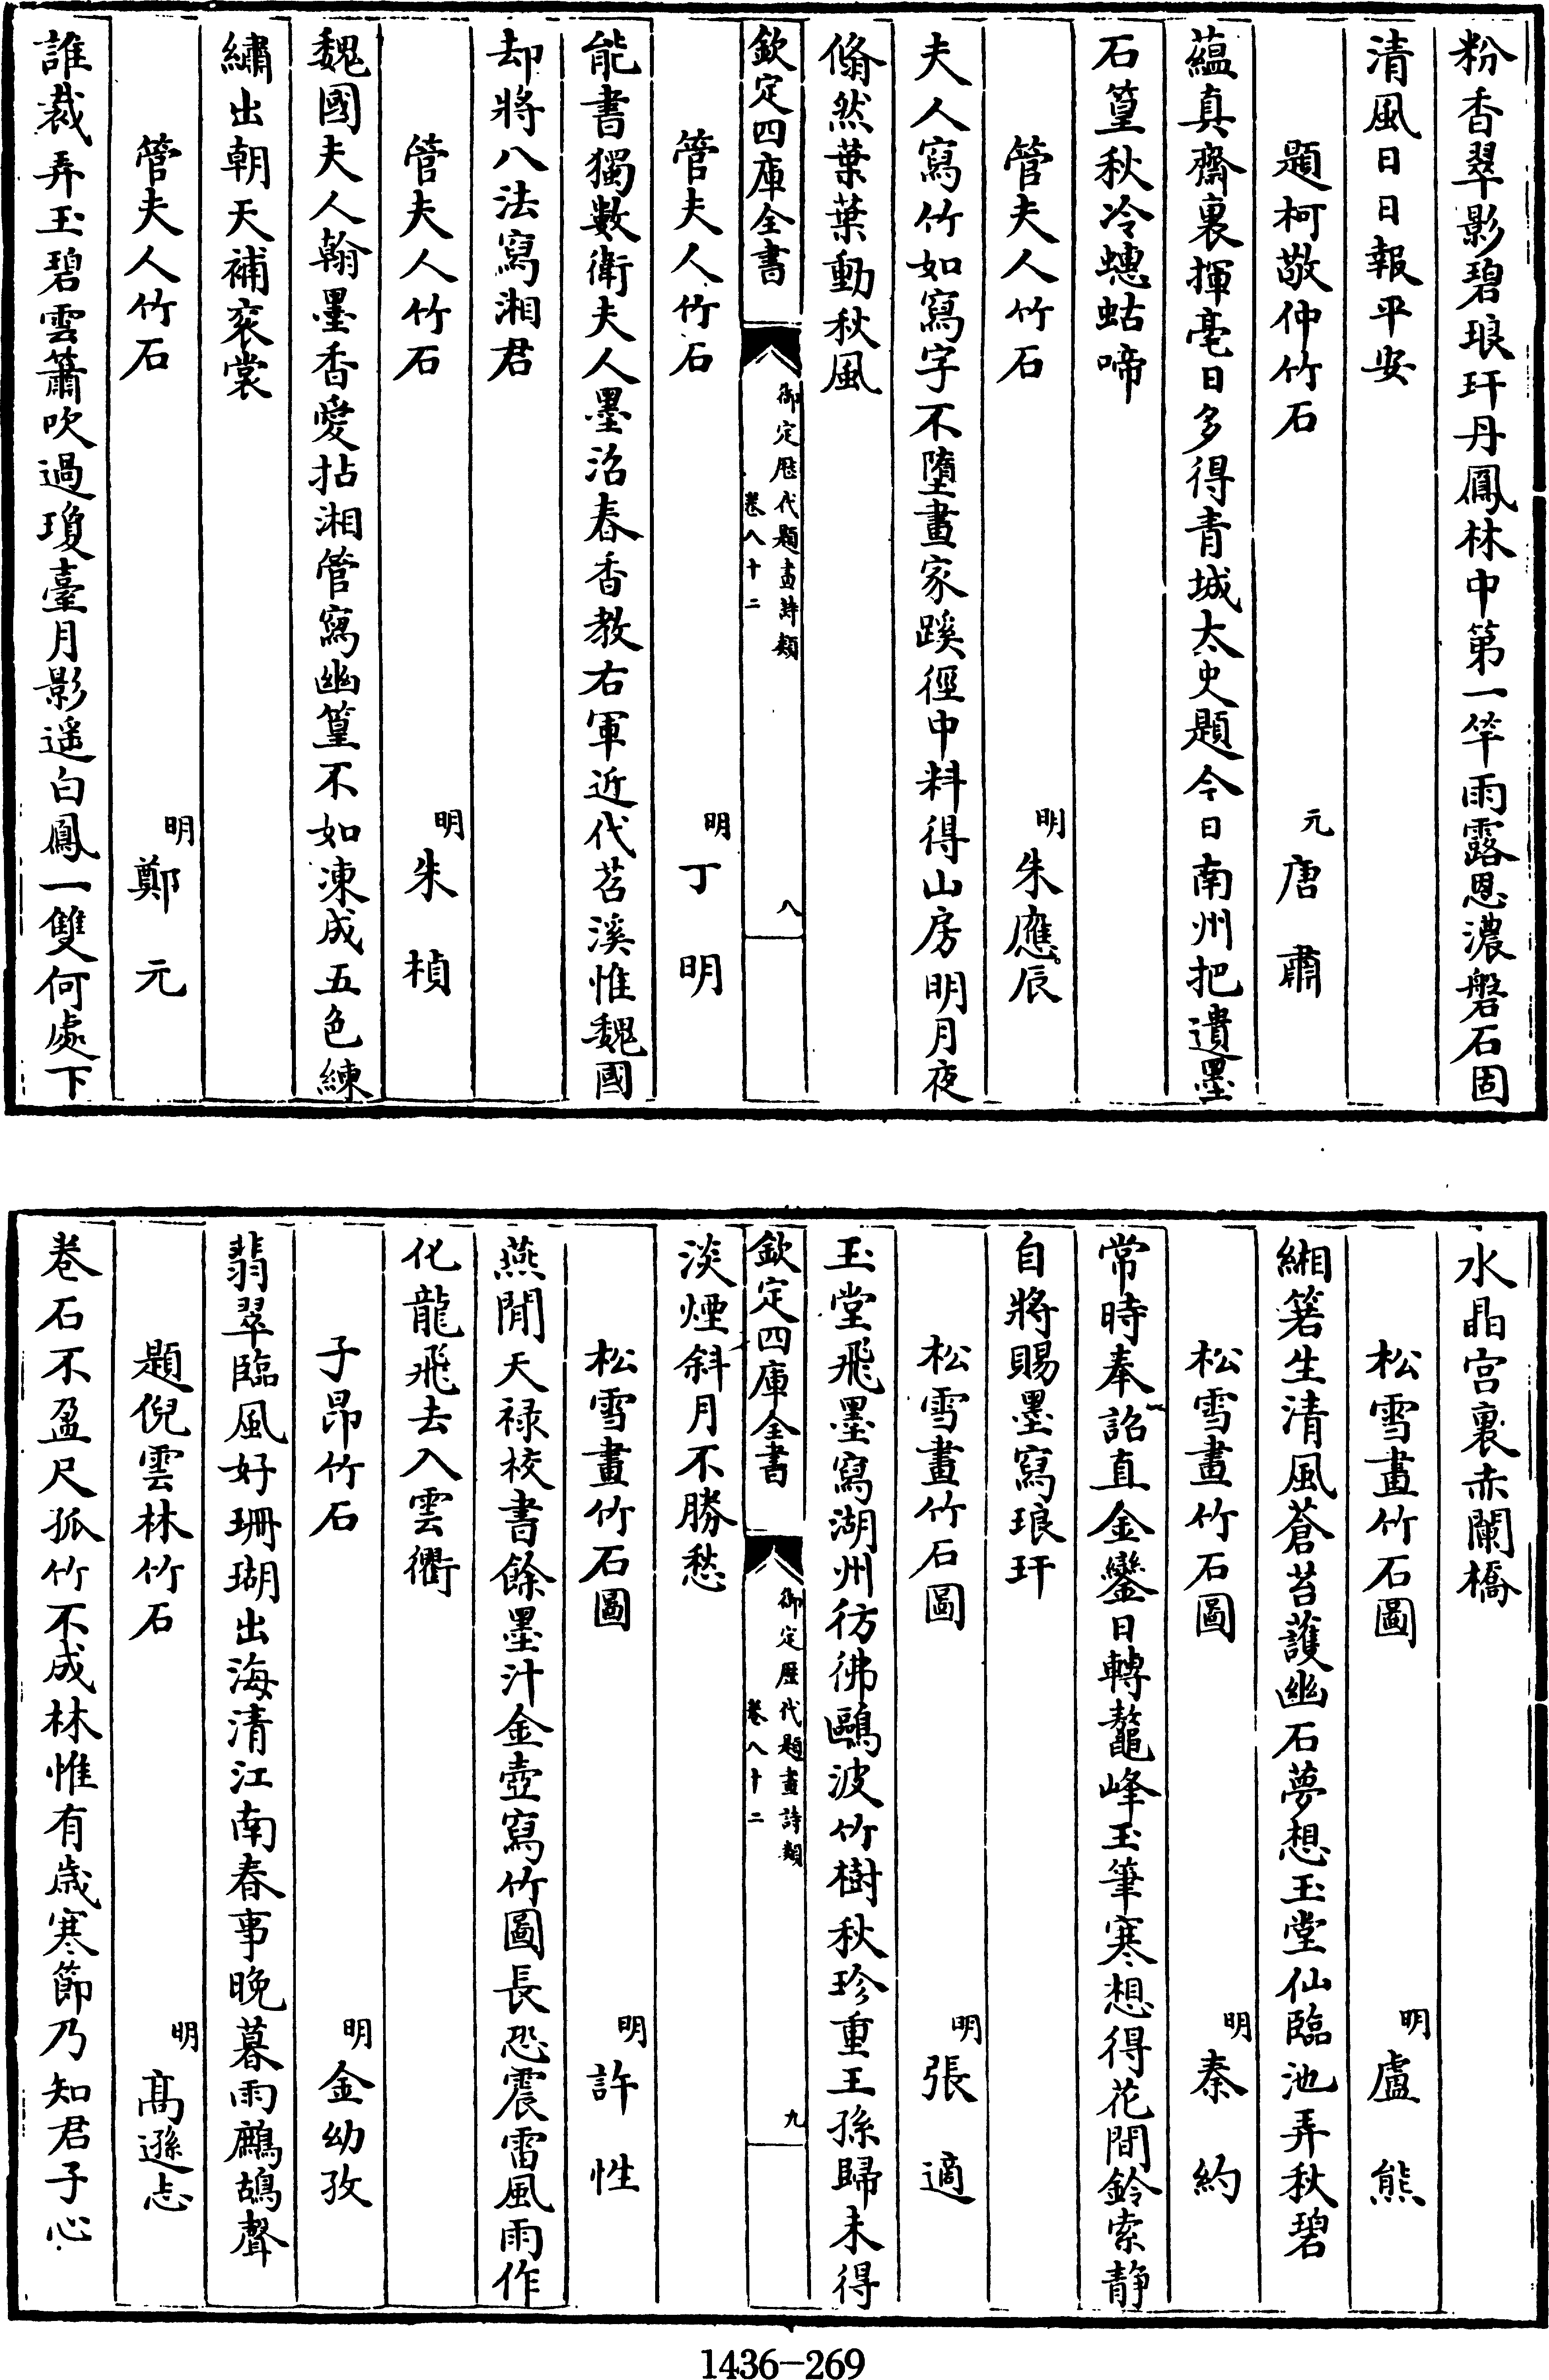 粉香翠影碧琅玕丹鳳林中第一竿雨露恩濃磐石固
清風日日報平安
題柯敬仲竹石
元唐肅
蘊真齋裏揮毫日多得青城太史題今日南州把遺墨
石篁秋冷蟪蛄啼
管夫人竹石
明朱應辰
夫人寫竹如寫字不墮畫家蹊徑中料得山房明月夜
翛然葉葉動秋風
欽定四庫全書
御定歷代題畫詩類
卷八十二
八
管夫人竹石
明丁明
能書獨數衛夫人墨沼春香教右軍近代苕溪惟魏國
却將八法寫湘君
管夫人竹石
明朱楨
魏國夫人翰墨香愛拈湘管寫幽篁不如凍成五色練
繡出朝天補衮裳
管夫人竹石
明鄭元
誰裁弄玉碧雲簫吹過瓊臺月影遥白鳳一雙何處下
水晶宫裏赤闌橋
松雪畫竹石圖
明盧熊
緗箬生清風蒼苔護幽石夢想玉堂仙臨池弄秋碧
松雪畫竹石圖
明秦約
常時奉詔直金鑾日轉鼇峰玉筆寒想得花間鈴索静
自將賜墨寫琅玕
松雪畫竹石圖
明張適
玉堂飛墨寫湖州彷彿鷗波竹樹秋珍重王孫歸未得
欽定四庫全書
御定歷代題畫詩類
卷八十二
九
淡煙斜月不勝愁
松雪畫竹石圖
明許性
燕閒天禄校書餘墨汁金壺寫竹圖長恐震雷風雨作
化龍飛去入雲衢
子昂竹石
明金幼孜
翡翠臨風好珊瑚出海清江南春事晚暮雨鷓鴣聲
題倪雲林竹石
明髙遜志
卷石不盈尺孤竹不成林惟有歲寒節乃知君子心
1436-269